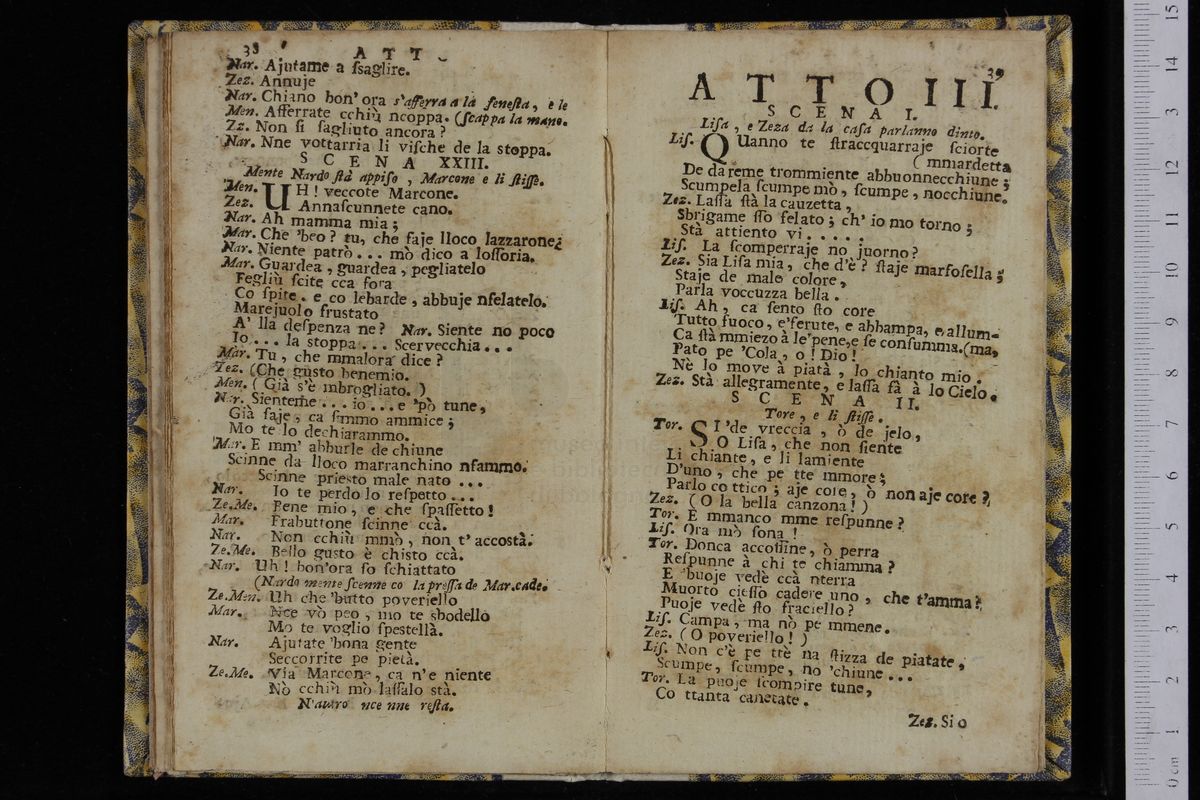 38 ATT
Nar. Ajutame a ſsaglire.
Zez. Annuje
Nar. Chiano bon' ora s'afferra a la feneſta, e le
Men. Afferrate cchiù ncoppa. (ſcappa la mano.
Zz. Non ſi ſagliuto ancora?
Nar. Nne vottarria li viſche de la stoppa.
SCENA XXIII.
Mente Nardo ſtà appiſo, Marcone e li ſtiſſe.
Men. UH! veccote Marcone.
Zez. Annaſcunnete cano.
Nar. Ah mamma mia;
Mar. Che 'beo? tu, che faje lloco lazzarone?
Nar. Niente patrò... mò dico a loſſoria.
Mar. Guardea, guardea, pegliatelo
Fegliù ſcite cca fora
Co ſpite. e co lebarde, abbuje nſelatelo.
Marejuolo fruſtato
A' lla deſpenza ne? Nar. Siente no poco
Io... la stoppa... Scervecchia...
Mar. Tu, che mmalora dice?
Zez. (Che gusto benemio.
Men. (Già s'è mbrogliato.)
Nar. Sienteme... io... e 'pò tune,
Già ſaje, ca ſimmo ammice;
Mo te lo dechiarammo.
Mar. E mm' abburle de chiune
Scinne da lloco marranchino nfammo.
Scinne priesto male nato...
Nar. Io te perdo lo reſpetto...
Ze.Me. Bene mio, e che ſpaſſetto!
Mar. Frabuttone ſcinne ccà.
Nar. Non cchiù mmò, non t' accostà.
Ze.Me. Bello gusto è chisto ccà.
Nar. Uh! bon'ora ſo ſchiattato
(Nardo mente ſcenne co la preſſa de Mar. cade.
Ze.Men. Uh che 'butto poveriello
Mar. Nce vò peo, mo te sbodello
Mo te voglio ſpestellà.
Nar. Ajutate 'bona gente
Seccorrite pe pietà.
Ze.Me. Via Marcone, ca n'e niente
Nò cchiù mò laſſalo stà.
N'autro nce nne reſta.
39
ATTO III.
SCENA I.
Liſa, e Zeza da la caſa parlanno dinto.
Liſ. QUanno te ſtraccquarraje ſciorte
(mmardetta
De dareme trommiente abbuonnecchiune;
Scumpela ſcumpe mò, ſcumpe, nocchiune.
Zez. Laſſa ſtà la cauzetta,
Sbrigame ſſo felato; ch' io mo torno;
Stà attiento vi.....
Liſ. La ſcomperraje no juorno?
Zez. Sia Liſa mia, che d'è? ſtaje marfoſella;
Staje de malo colore,
Parla voccuzza bella.
Liſ. Ah, ca ſento ſto core
Tutto fuoco, e' ferute, e abbampa, e allum-
Ca ſtà mmiezo à le' pene, e ſe conſumma. (ma,
Pato pe 'Cola, o! Dio!
Nè lo move à piatà, lo chianto mio.
Zez. Stà allegramente, e laſſa fà à lo Cielo.
SCENA II.
Tore, e li ſtiſſe.
Tor. SI 'de vreccia, ò de jelo,
O Liſa, che non ſiente
Li chiante, e li lamiente
D'uno, che pe tte mmore;
Parlo co ttico; aje core, ò non aje core?
Zez. (O la bella canzona!)
Tor. E mmanco mme reſpunne?
Liſ. Ora mò ſona!
Tor. Donca accoſſine, ò perra
Reſpunne à chi te chiamma?
E 'buoje vedè ccà nterra
Muorto cieſſo cadere uno, che t'amma?
Puoje vedè ſto fraciello?
Liſ. Campa, ma nò pe mmene.
Zez. (O poveriello!)
Liſ. Non c'è pe ttè na ſtizza de piatate,
Scumpe, ſcumpe, no 'chiune...
Tor. La puoje ſcompire tune,
Co ttanta canetate.
Zez. Si o
15 14 13 12 11 10 9 8 7 6 5 4 3 2 1 0 cm